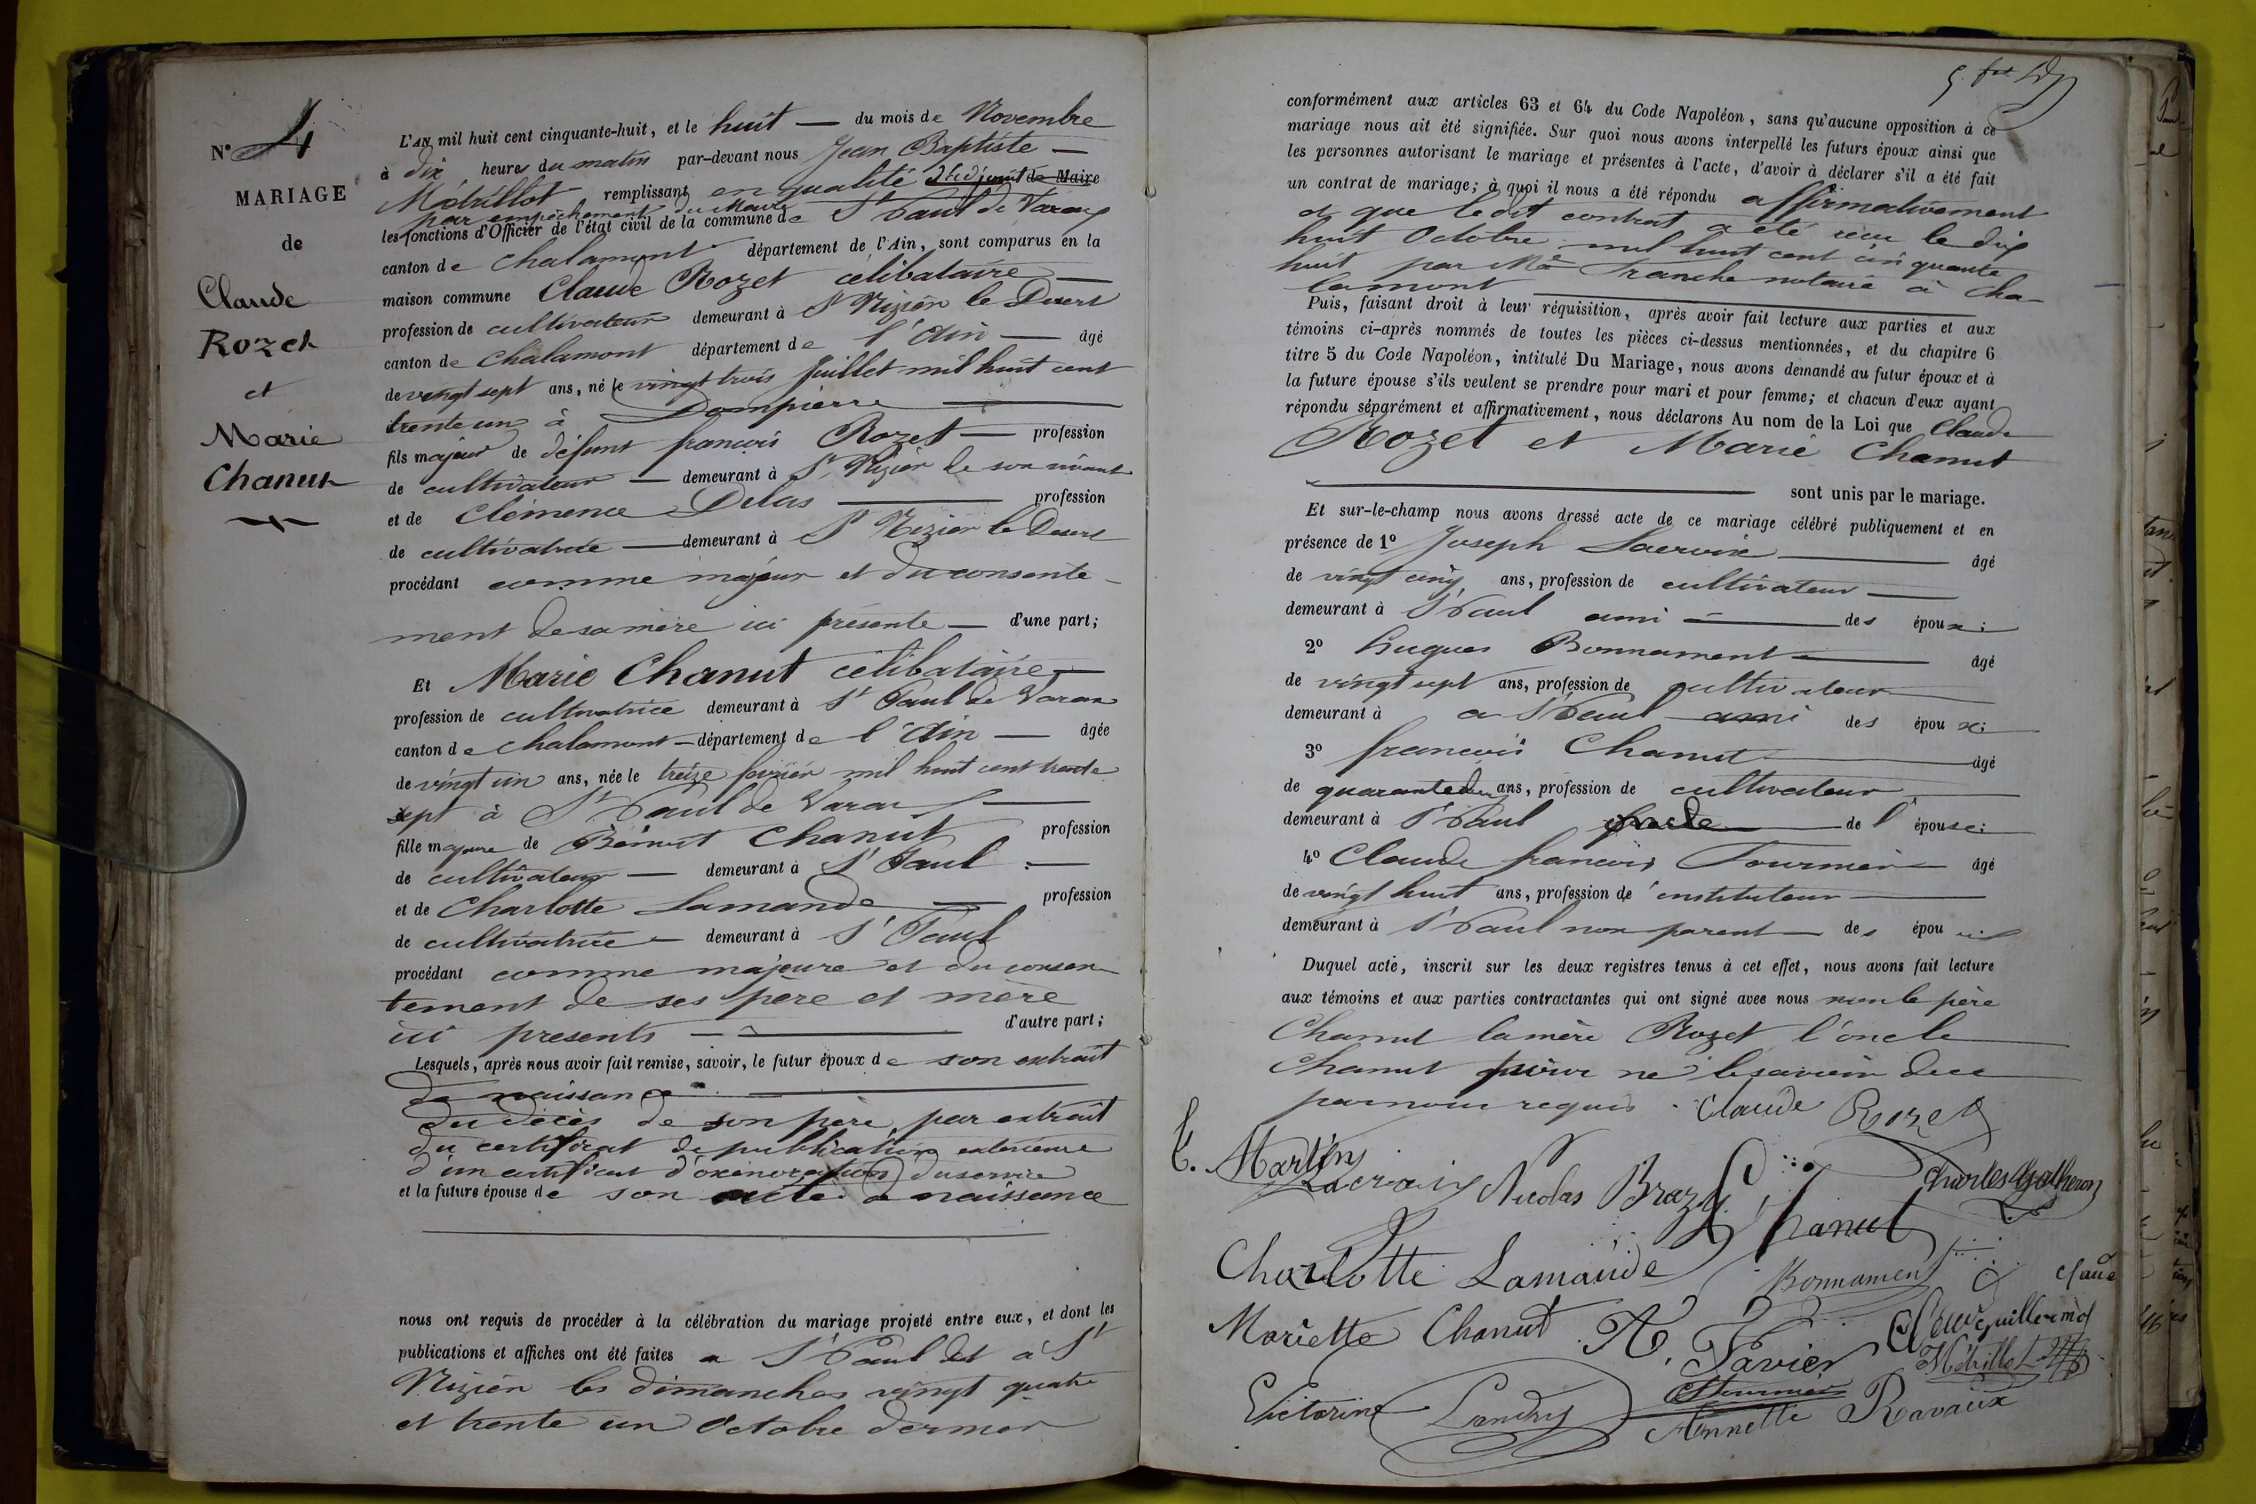 N° 4
MARIAGE
de
Claude
Rozet
et
Marie
Chanut
L'AN mil huit cent cinquante-huit, et le huit du mois de Novembre
à dix heures du matin par-devant nous Jean Baptiste
Métrillot remplissant en qualité d'adjoint de Maire
par empêchement du Maire
les fonctions d'Officier de l'état civil de la commune de St Paul de Varax
canton de Chalamont département de l'Ain, sont comparus en la
maison commune Claude Rozet célibataire
profession de cultivateur demeurant à St Nizier le Desert
canton de Chalamont département de l'Ain âgé
de vingt sept ans, né le vingt trois Juillet mil huit cent
trente un à Dompierre
fils majeur de défunt françois Rozet profession
de cultivateur demeurant à St Nizier de son vivant
et de Clémence Delas profession
de cultivatrice demeurant à St Nizier le Desert
procédant comme majeur et du consente-
ment de sa mère ici présente d'une part;
Et Marie Chanut célibataire
profession de cultivatrice demeurant à St Paul de Varax
canton de Chalamont département de l'Ain âgée
de vingt un ans, née le treize février mil huit cent trente
sept à St Paul de Varax
fille majeure de Benoit Chanut profession
de cultivateur demeurant à St Paul
et de Charlotte Lamande profession
de cultivatrice demeurant à St Paul
procédant comme majeure et du consen
tement de ses père et mère
ici presents d'autre part;
Lesquels, après nous avoir fait remise, savoir, le futur époux de son extrait
de naissance
du décès de son père par extrait
du certificat de publication exterieure
d'un certificat d'exoneration du service
et la future épouse de son acte de naissance
nous ont requis de procéder à la célébration du mariage projeté entre eux, et dont les
publications et affiches ont été faites a St Paul et à St
Nizier les dimanches vingt quatre
et trente un Octobre dernier
conformément aux articles 63 et 64 du Code Napoléon, sans qu'aucune opposition à ce
mariage nous ait été signifiée. Sur quoi nous avons interpellé les futurs époux ainsi que
les personnes autorisant le mariage et présentes à l'acte, d'avoir à déclarer s'il a été fait
un contrat de mariage; à quoi il nous a été répondu affirmativement
et que ledit contrat a été reçu le dix
huit Octobre mil huit cent cinquante
huit par Me Tranche notaire à Cha-
lamont
Puis, faisant droit à leur réquisition, après avoir fait lecture aux parties et aux
témoins ci-après nommés de toutes les pièces ci-dessus mentionnées, et du chapitre 6
titre 5 du Code Napoléon, intitulé Du Mariage, nous avons demandé au futur époux et à
la future épouse s'ils veulent se prendre pour mari et pour femme; et chacun d'eux ayant
répondu séparément et affirmativement, nous déclarons Au nom de la Loi que Claude
Rozet et Marie Chanut
sont unis par le mariage.
Et sur-le-champ nous avons dressé acte de ce mariage célébré publiquement et en
présence de 1° Joseph Lacroix âgé
de vingt cinq ans, profession de cultivateur
demeurant à St Paul ami des époux;
2° Hugues Bonnament âgé
de vingt sept ans, profession de cultivateur
demeurant à a St Paul ami des époux;
3° françois Chanut âgé
de quarante deux ans, profession de cultivateur
demeurant à St Paul oncle de l'épouse;
4° Claude françois Fournier âgé
de vingt huit ans, profession de instituteur
demeurant à St Paul non parent des époux
Duquel acte, inscrit sur les deux registres tenus à cet effet, nous avons fait lecture
aux témoins et aux parties contractantes qui ont signé avec nous non le père
Chanut la mère Rozet l'oncle
Chanut pour ne le savoir de ce
par nous requis. Claude Rozet
C. Martin
Lacroix Nicolas Braz Chanut
Charlotte Lamande Bonnament
Mariette Chanut A. Favier Guillermot
Métrillot
Victorine Landry Fournier
Annette Ravaux